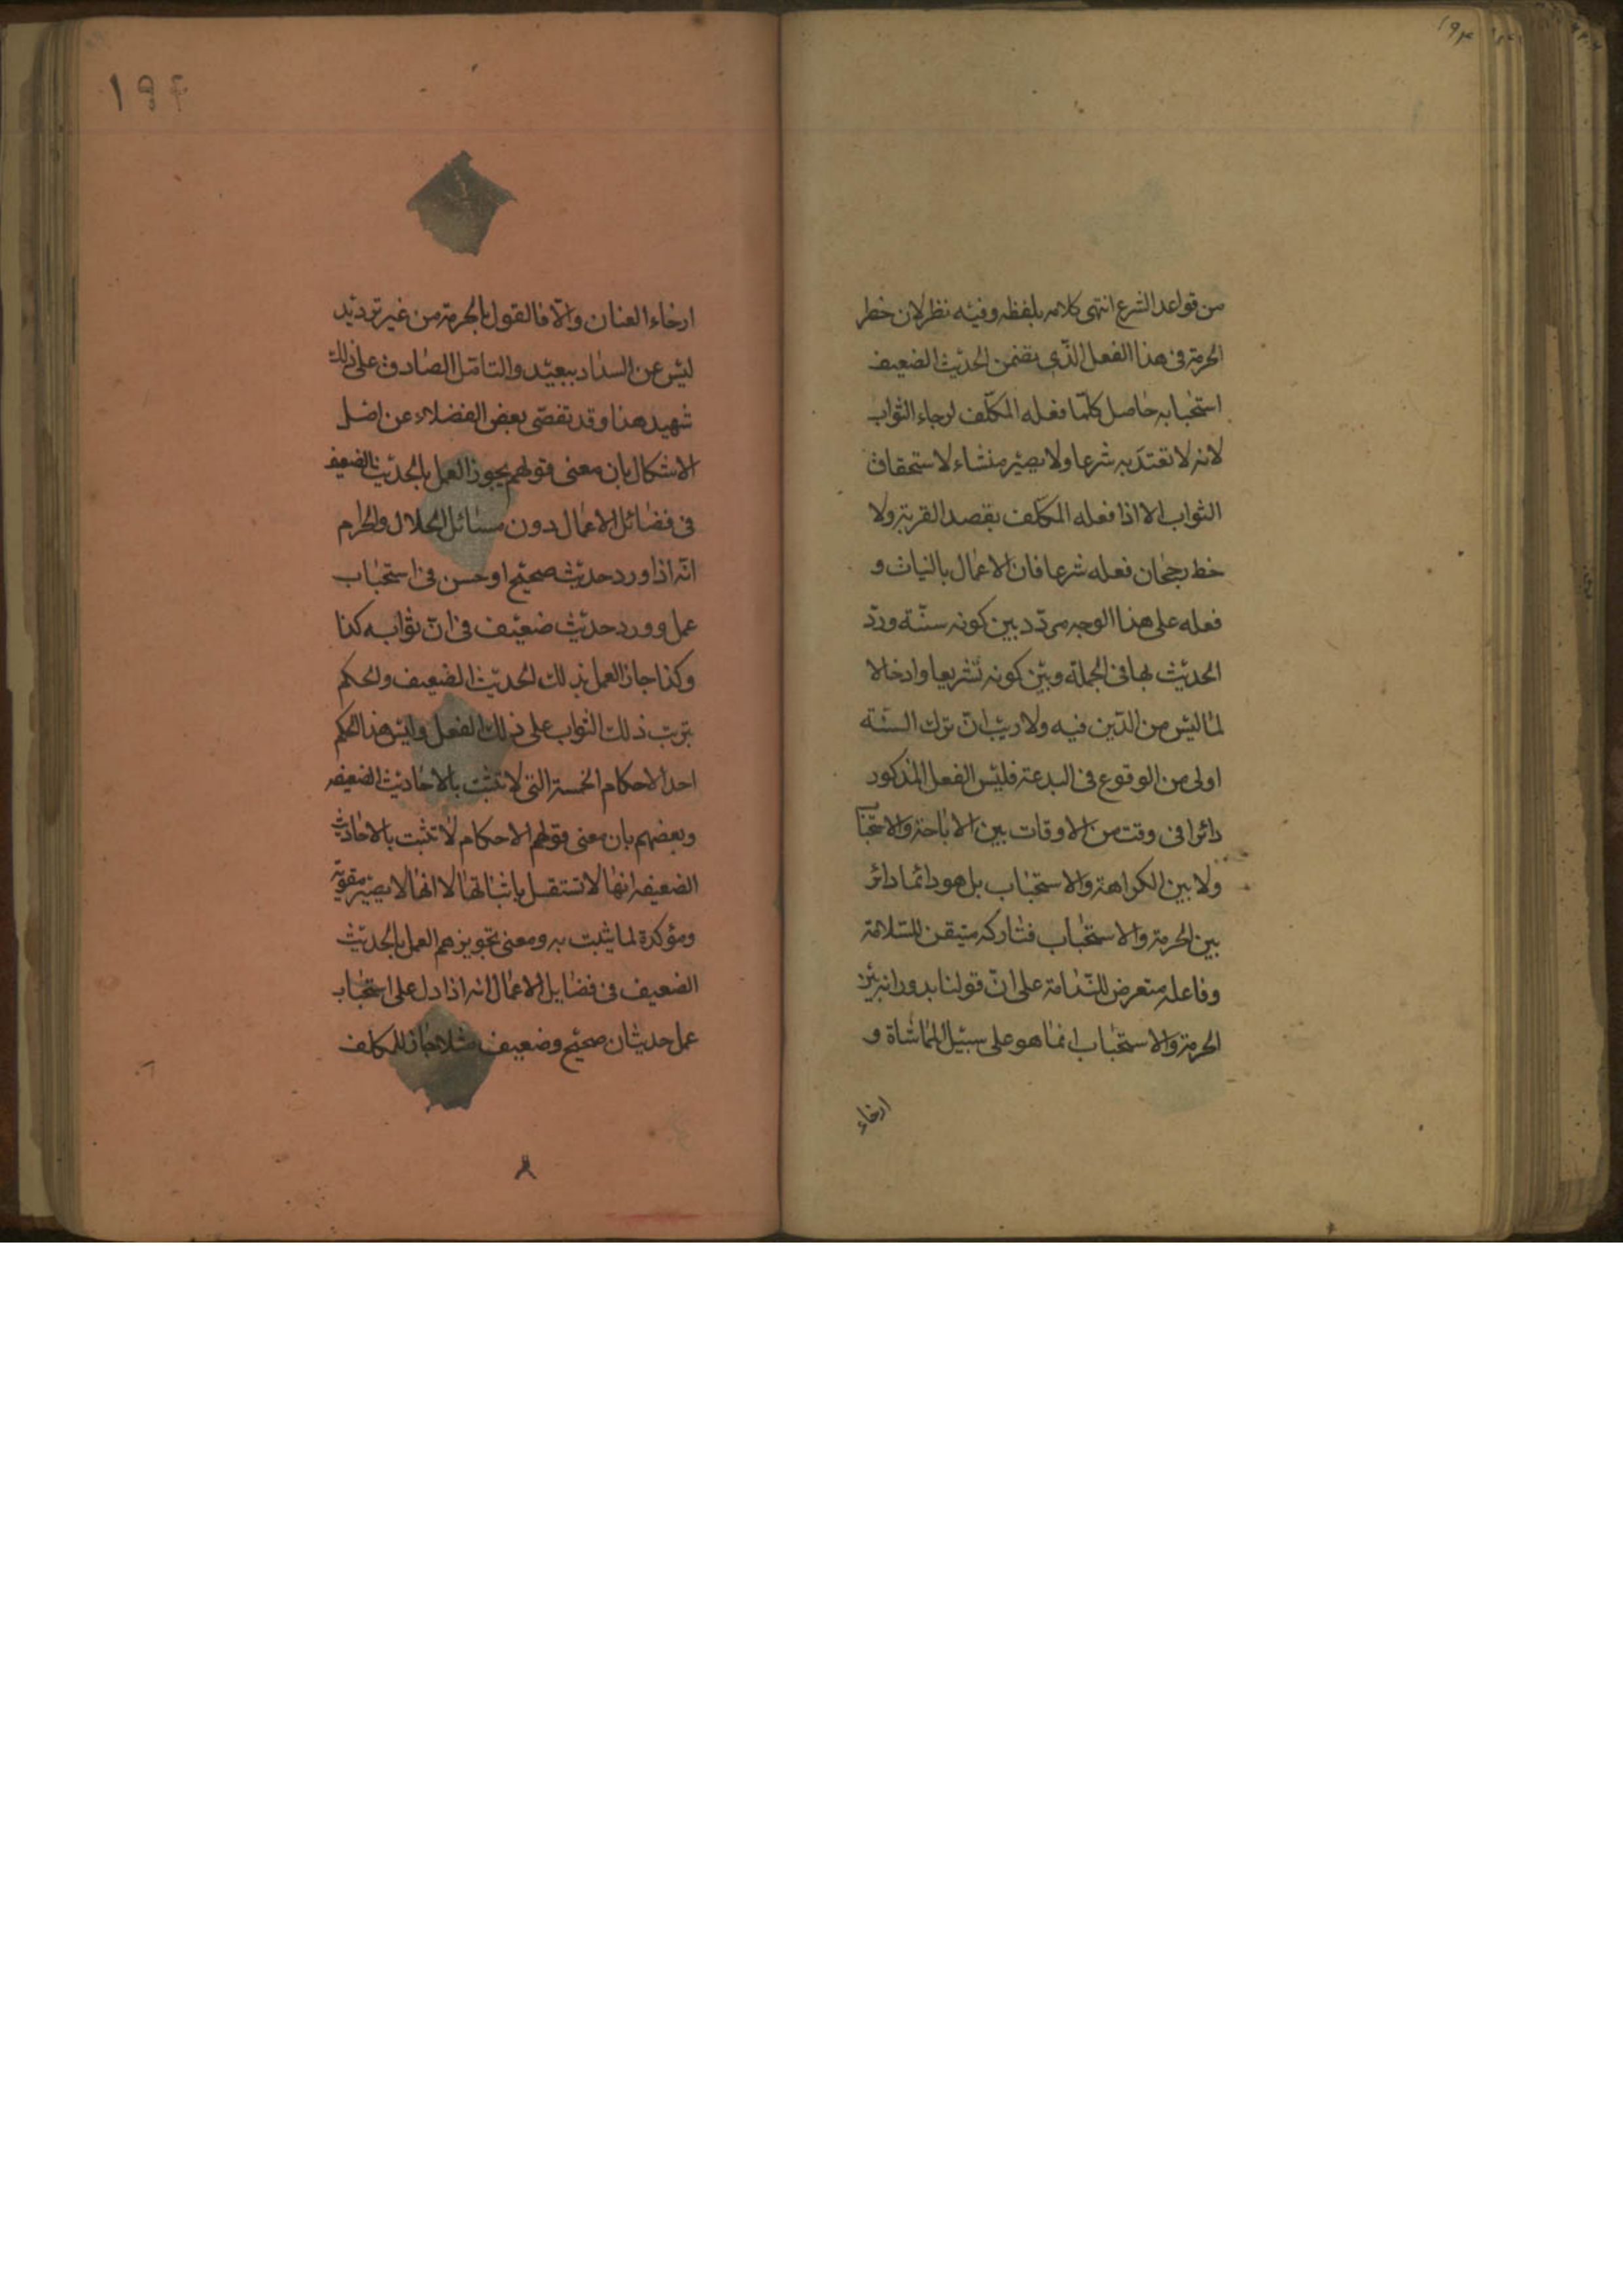 من قواعد الشرع انتهى كلامه بلفظه وفيه نظر لان خطر
الحرمة فى هذا الفعل الذّى تضمن الحديث الضعيف
استحبابه حاصل كلّما فعله المكلّف لرجاء الثواب
لانه لا تعتدّ به شرعا ولا يصير منشاء لاستحقاق
الثواب الا اذا فعله المكلف بقصد القربة ولا
خط رجحان فعله شرعا فان الاعمال بالنيات و
فعله على هذا الوجه مردّد بين كونه سنّة ورد
الحديث بها فى الجملة وبين كونه تشريعا وادخالا
لما ليس من الدّين فيه ولا ريب انّ ترك السنّة
اولى من الوقوع فى البدعة فليس الفعل المذكور
دائرا فى وقت من الاوقات بين الاباحة والاستحبا
ولا بين الكراهة والاستحباب بل هو دائما دائر
بين الحرمة والاستحباب فتاركه متيقن للسّلامة
وفاعله متعرض للنّدامة على انّ قولنا بدورانه بين
الحرمة والاستحباب انما هو على سبيل المماشاة و
ارخاء
١٩٤
ارخاء العنان والّا فالقول بالحرمة من غير ترديد
ليس عن السداد ببعيد والتامّل الصّادق على ذلك
شهيد هذا وقد تفصّى بعض الفضلاء عن اصل
الاشكال بان معنى قولهم يجوز العمل بالحديث الضعيف
فى فضائل الاعمال دون مسائل الحلال والحرام
انّه اذا ورد حديث صحيح او حسن فى استحباب
عمل وورد حديث ضعيف فى انّ ثوابه كذا
وكذا جاز العمل بذلك الحديث الضعيف والحكم
بترتب ذلك الثواب على ذلك الفعل وليس هذا الحكم
احد الاحكام الخمسة التى لا تثبت بالاحاديث الضعيفه
وبعضهم بان معنى قولهم الاحكام لا تثبت بالاحاديث
الضعيفه انها لا تستقل باثباتها لا انها لا يصير مقويّة
ومؤكدة لما يثبت به ومعنى تجويزهم العمل بالحديث
الضعيف فى فضايل الاعمال انه اذا دل على استحباب
عمل حديثان صحيح وضعيف مثلا جاز للمكلف
٨